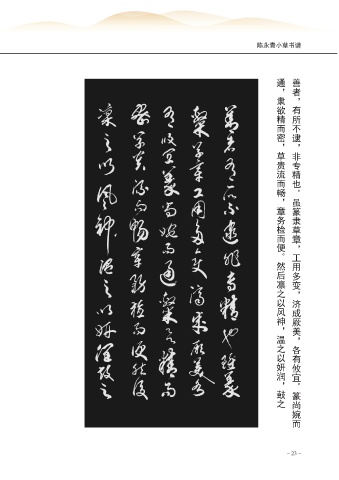 陈永贵小草书谱
善者，有所不逮，非专精也。虽篆隶草章，工用多变，济成厥美，各有攸宜，篆尚婉而
通，隶欲精而密，草贵流而畅，章务检而便。然后凛之以风神，温之以妍润，鼓之
善者有所不逮非專精也雖篆
隸草章工用多變濟成厥美各
有攸宜篆尚婉而通隸欲精而
密草貴流而暢章務檢而便然後
凛之以風神温之以妍潤鼓之
- 23 -